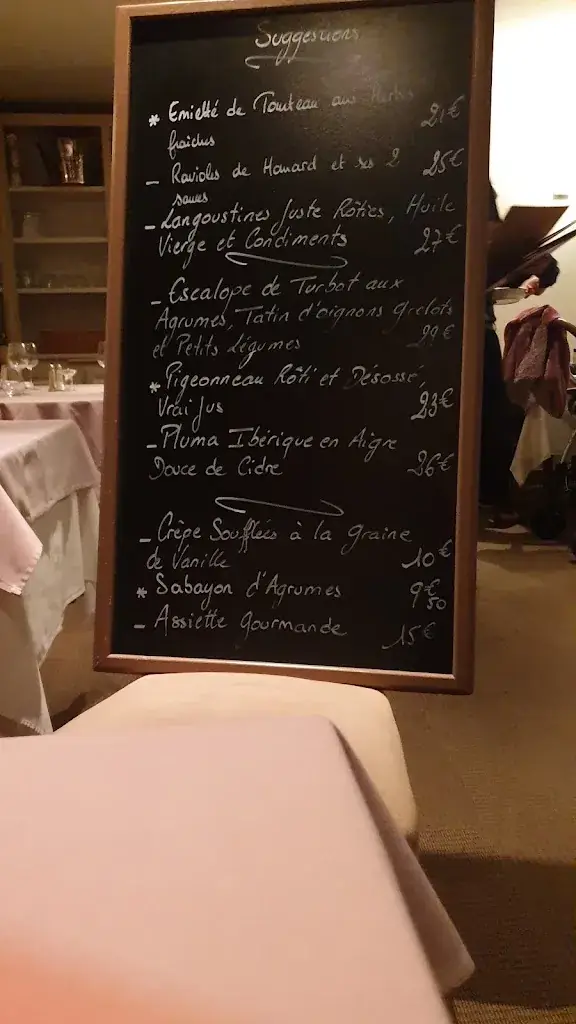 Suggestions
* Emietté de Tourteau aux Herbes 21€
fraiches
- Ravioles de Homard et ses 2 25€
sauces
- Langoustines Juste Rôties, Huile
Vierge et Condiments 27€
- Escalope de Turbot aux
Agrumes, Tatin d'oignons Grelots
et Petits Légumes 29€
* Pigeonneau Rôti et Désossé,
Vrai Jus 23€
- Pluma Ibérique en Aigre
Douce de Cidre 26€
- Crêpe Soufflées à la graine
de Vanille 10€
* Sabayon d'Agrumes 9€50
- Assiette Gourmande 15€